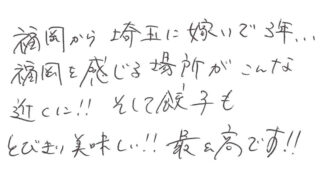 福岡から埼玉に嫁いで3年...
福岡を感じる場所がこんな
近くに!! そして餃子も
とびきり美味しい!! 最&高です!!